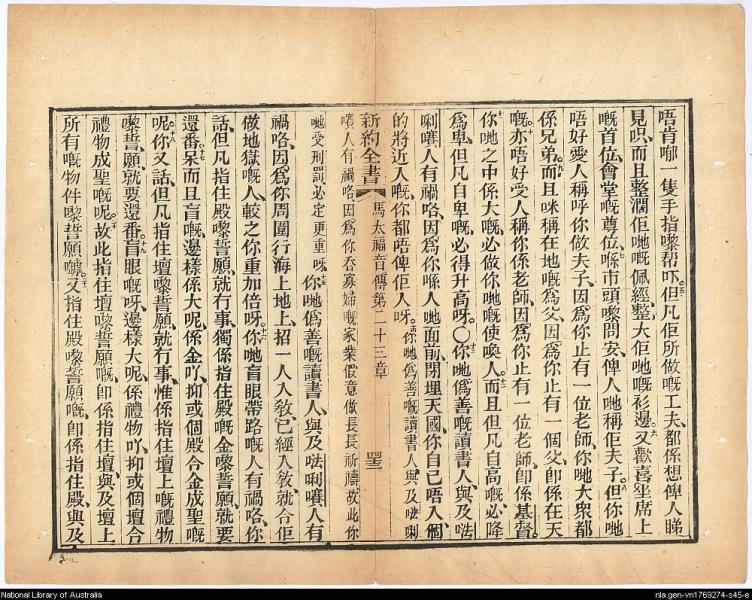 唔肯郁一隻手指嚟幫吓但凡佢所做嘅工夫都係想俾人睇
見呮而且整濶佢哋嘅佩經整大佢哋嘅衫邊又歡喜坐席上
嘅首位會堂嘅尊位喺市頭嚟問安俾人哋稱佢夫子但你哋
唔好愛人稱呼你做夫子因爲你止有一位老師你哋大衆都
係兄弟而且咪稱在地嘅爲父因爲你止有一個父卽係在天
嘅亦唔好受人稱你係老師因爲你止有一位老師卽係基督
你哋之中係大嘅必做你哋嘅使喚人而且但凡自高嘅必降
爲卑但凡自卑嘅必得升高呀〇你哋僞善嘅讀書人與及𠵽
唎嚷人有禍咯因爲你喺人哋面前閉埋天國你自己唔入個
的將近入嘅你都唔俾佢入呀你哋僞善嘅讀書人與及𠵽唎
新約全書 馬太福音傳第二十三章
嚷人有禍咯因爲你吞寡婦嘅家業假意做長長祈禱故此你
哋受刑罰必定更重呀你哋僞善嘅讀書人與及𠵽唎嚷人有
禍咯因爲你周圍行海上地上招一人入敎已經入敎就合佢
做地獄嘅人較之你重加倍呀你哋盲眼帶路嘅人有禍咯你
話但凡指住殿嚟誓願就冇事獨係指住殿嘅金嚟誓願就要
還番呆而且盲嘅邊樣係大呢係金吖抑或個殿合金成聖嘅
呢你又話但凡指住壇嚟誓願就冇事惟係指住壇上嘅禮物
嚟誓願就要還番盲眼嘅呀邊樣大呢係禮物吖抑或個壇合
禮物成聖嘅呢故此指住壇嚟誓願嘅卽係指住壇與及壇上
所有嘅物件嚟誓願㗎又指住殿嚟誓願嘅卽係指住殿與及
National Library of Australia
nla.gen-vn1769274-s45-e